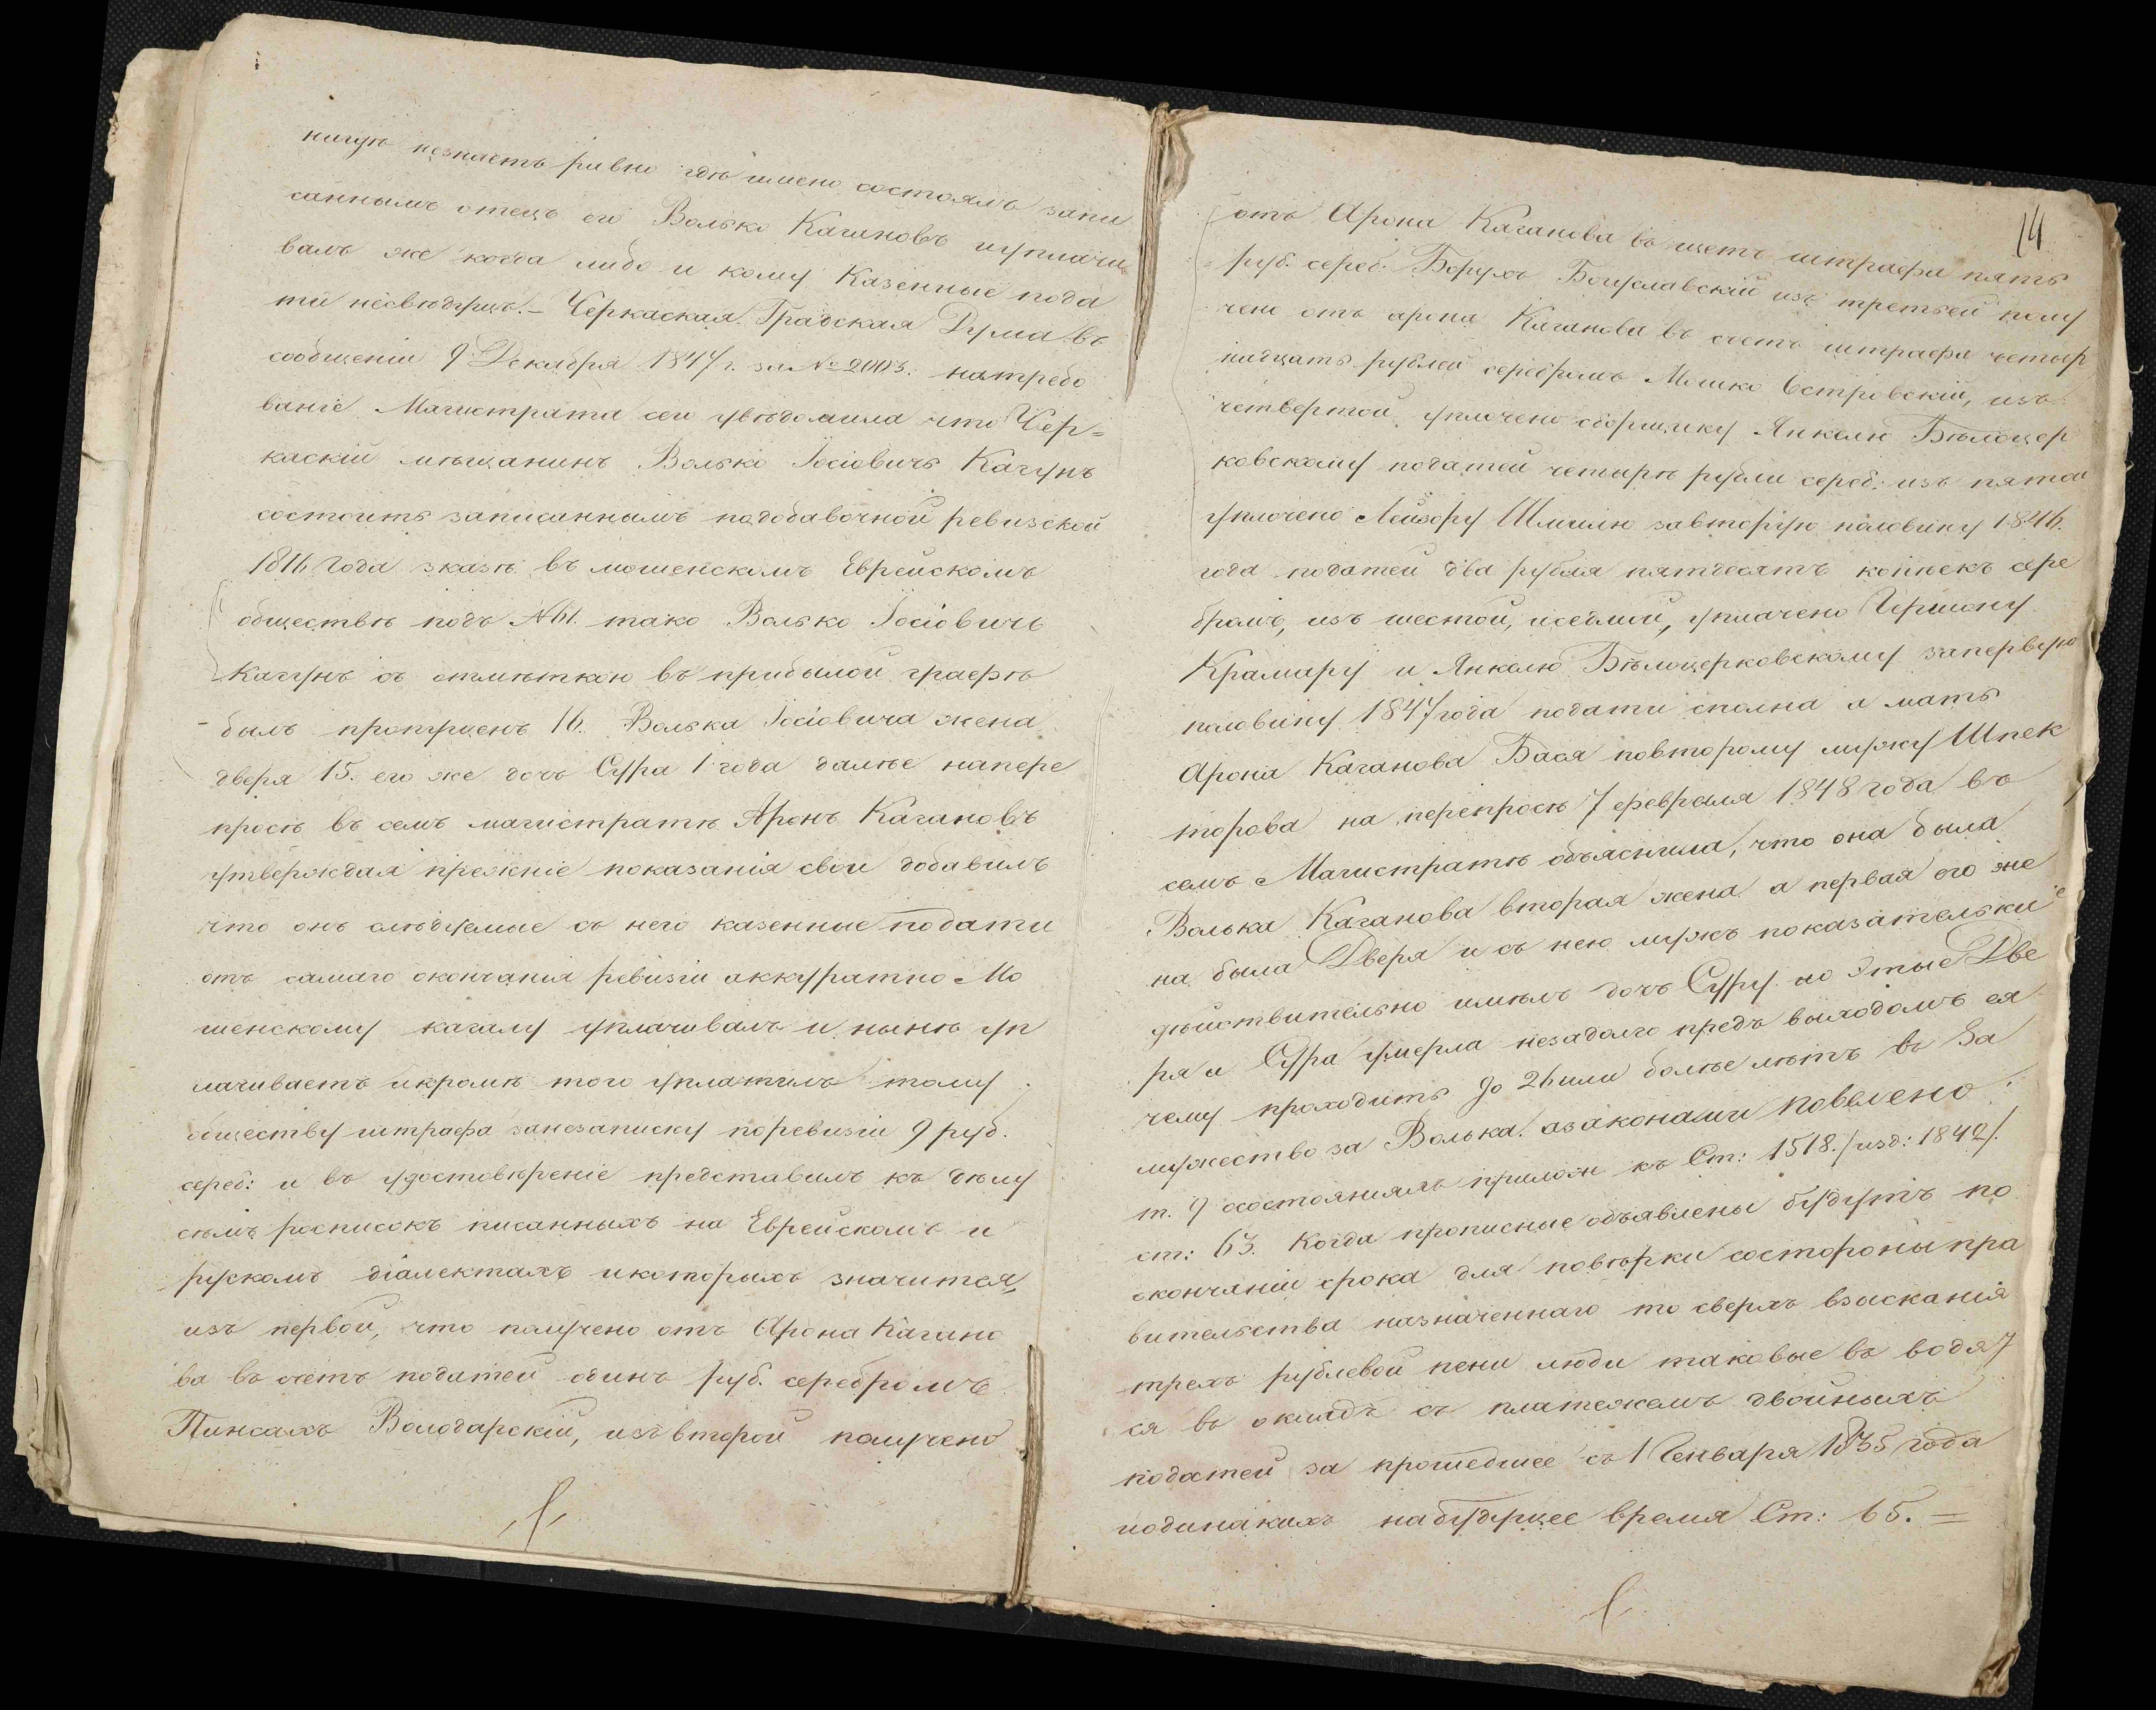 нигдѣ незнаетъ равно гдѣ имено состоялъ запи
саннымъ отецъ его Волько Кагановъ иуплачи
валъ же когда либо и кому Казенные пода
ти несвѣдущъ. – Черкаская Градская Дума въ
сообщеніи 9 Декабря 1847 г. за № 2003. натребо
ваніе Магистрата сего увѣдомила что Чер=
каскій мѣщанинъ Волько Іосіовичъ Кагунъ
состоитъ записаннымъ подобавочной ревизской
1816 года сказкѣ въ мошенскомъ Еврейскомъ
обществѣ подъ № 61. тако Волько Іосіовичъ
Кагунъ съ отмѣткою въ прибылой графѣ
былъ пропущенъ 16. Волька Іосіовича жена
дверя 15. его же дочь Сура 1 года далѣе напере
просѣ въ семъ магистратѣ Аронъ Кагановъ
утверждая прежніе показанія свои добавилъ
что онъ слѣдуемые съ него казенные подати
отъ самаго окончанія ревизіи аккуратно Мо
шенскому кагалу уплачивалъ и нынѣ уп
лачиваетъ икромѣ того уплатилъ тому
обществу штрафа занезаписку поревизіи 9 руб.
сереб: и въ удостовѣреніе представилъ къ дѣлу
семь росписокъ писанныхъ на Еврейскомъ и
рускомъ діалектахъ икоторыхъ значится,
изъ первой, что получено отъ Арона Кагано
ва въ счетъ податей одинъ руб. серебромъ
Пинсахъ Володарскій, изъ второй получено
14
отъ Арона Каганова въ щетъ штрафа пять
руб. сереб. Борухъ Богуславскій изъ третьей полу
чено отъ арона Каганова въ счетъ штрафа четыр
надцать рублей серебромъ Мошко Островскій, изъ
четвертой, уплочено сборщику Янкелю Бѣлоцер
ковскому податей четырѣ рубли сереб: изъ пятой
уплочено Лейзору Шмилю завторую половину 1846.
года податей два рубля пятдесятъ копѣекъ сере
бромъ, изъ шестой, иседмой, уплачено Гершону
Крамару и Янкелю Бѣлоцерковскому запервую
половину 1847 года подати сполна и мать
Арона Каганова Бася повторому мужу Шпек
торова на перепросѣ 7 февраля 1848 года въ
семъ Магистратѣ объяснила, что она была
Волька Каганова вторая жена а первая его же
на была Дверя и съ нею мужъ показательки
дѣйствительно имѣлъ дочь Суру но Этые Две
ря и Сура умерла незадолго предъ выходомъ ея
чему проходитъ до 26 или болѣе лѣтъ въ За
мужество за Волька. азаконами повелено:
т. 9 осостоянияхъ прилож къ Ст: 1518. /изд: 1842/.
ст: 63. Когда прописные объявлены будутъ по
окончаніи срока для повѣрки состороны пра
вительства назначеннаго то сверхъ взысканія
трехъ рублевой пени люди таковые въ водят
ся въ окладъ съ платежемъ двойныхъ
податей за прошедшее съ 1 Генваря 1835 года
иодинакихъ набудущее время Ст: 65. =